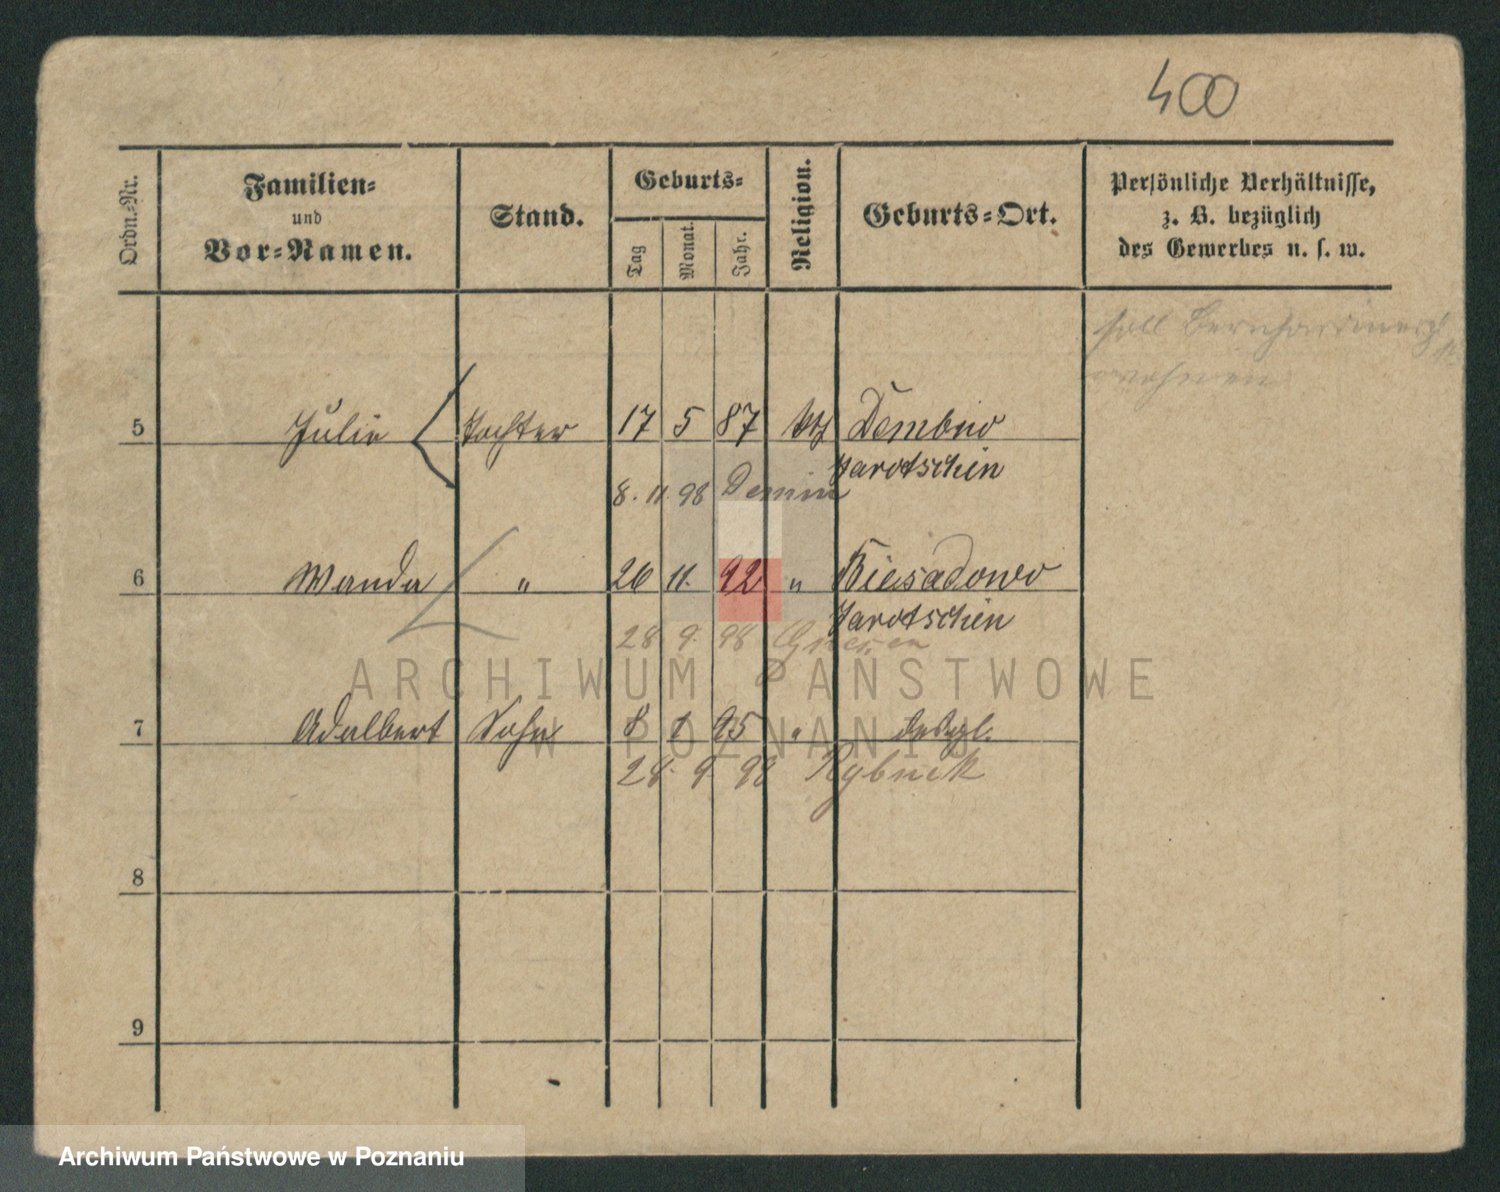 400
Ordn.-Nr.
Familien-
und
Vor-Namen.
Stand.
Geburts-
Tag
Monat.
Jahr.
Religion.
Geburts-Ort.
Persönliche Verhältnisse,
z. B. bezüglich
des Gewerbes u. s. w.
soll
wohnen
5 Julie Tochter 17 5 87 Dembno
Jarotschin
8. 11. 98
6 Wanda " 26 11. 92 " Biesadowo
Jarotschin
28 9. 98 Gnesen
7 Adalbert Sohn 8 1 95 " desgl.
28. 9 98 Rybnik
8
9
ARCHIWUM PAŃSTWOWE
W POZNANIU
Archiwum Państwowe w Poznaniu